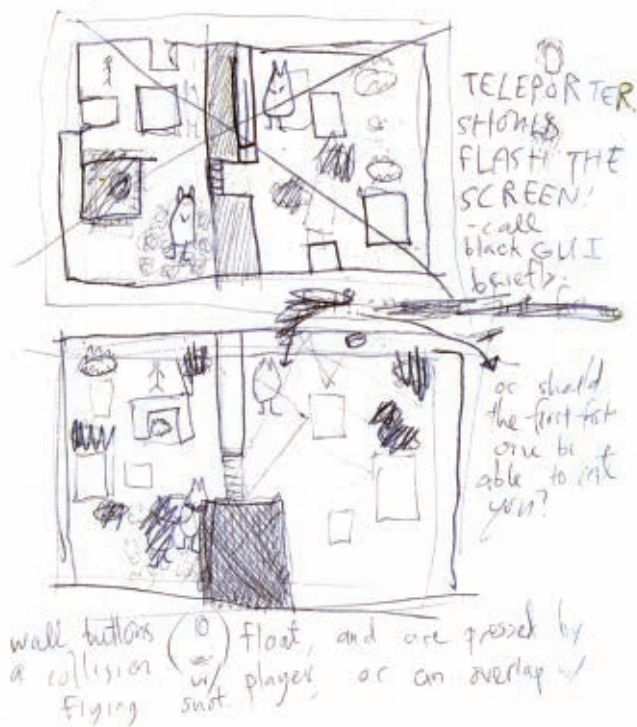 TELEPORTER
SHOULD
FLASH THE
SCREEN!
-call
black GUI
briefly.
or should
the first
one be
able to
you?
wall buttons float, and are pressed by
a collision w/ player, or an overlap w/
flying snot